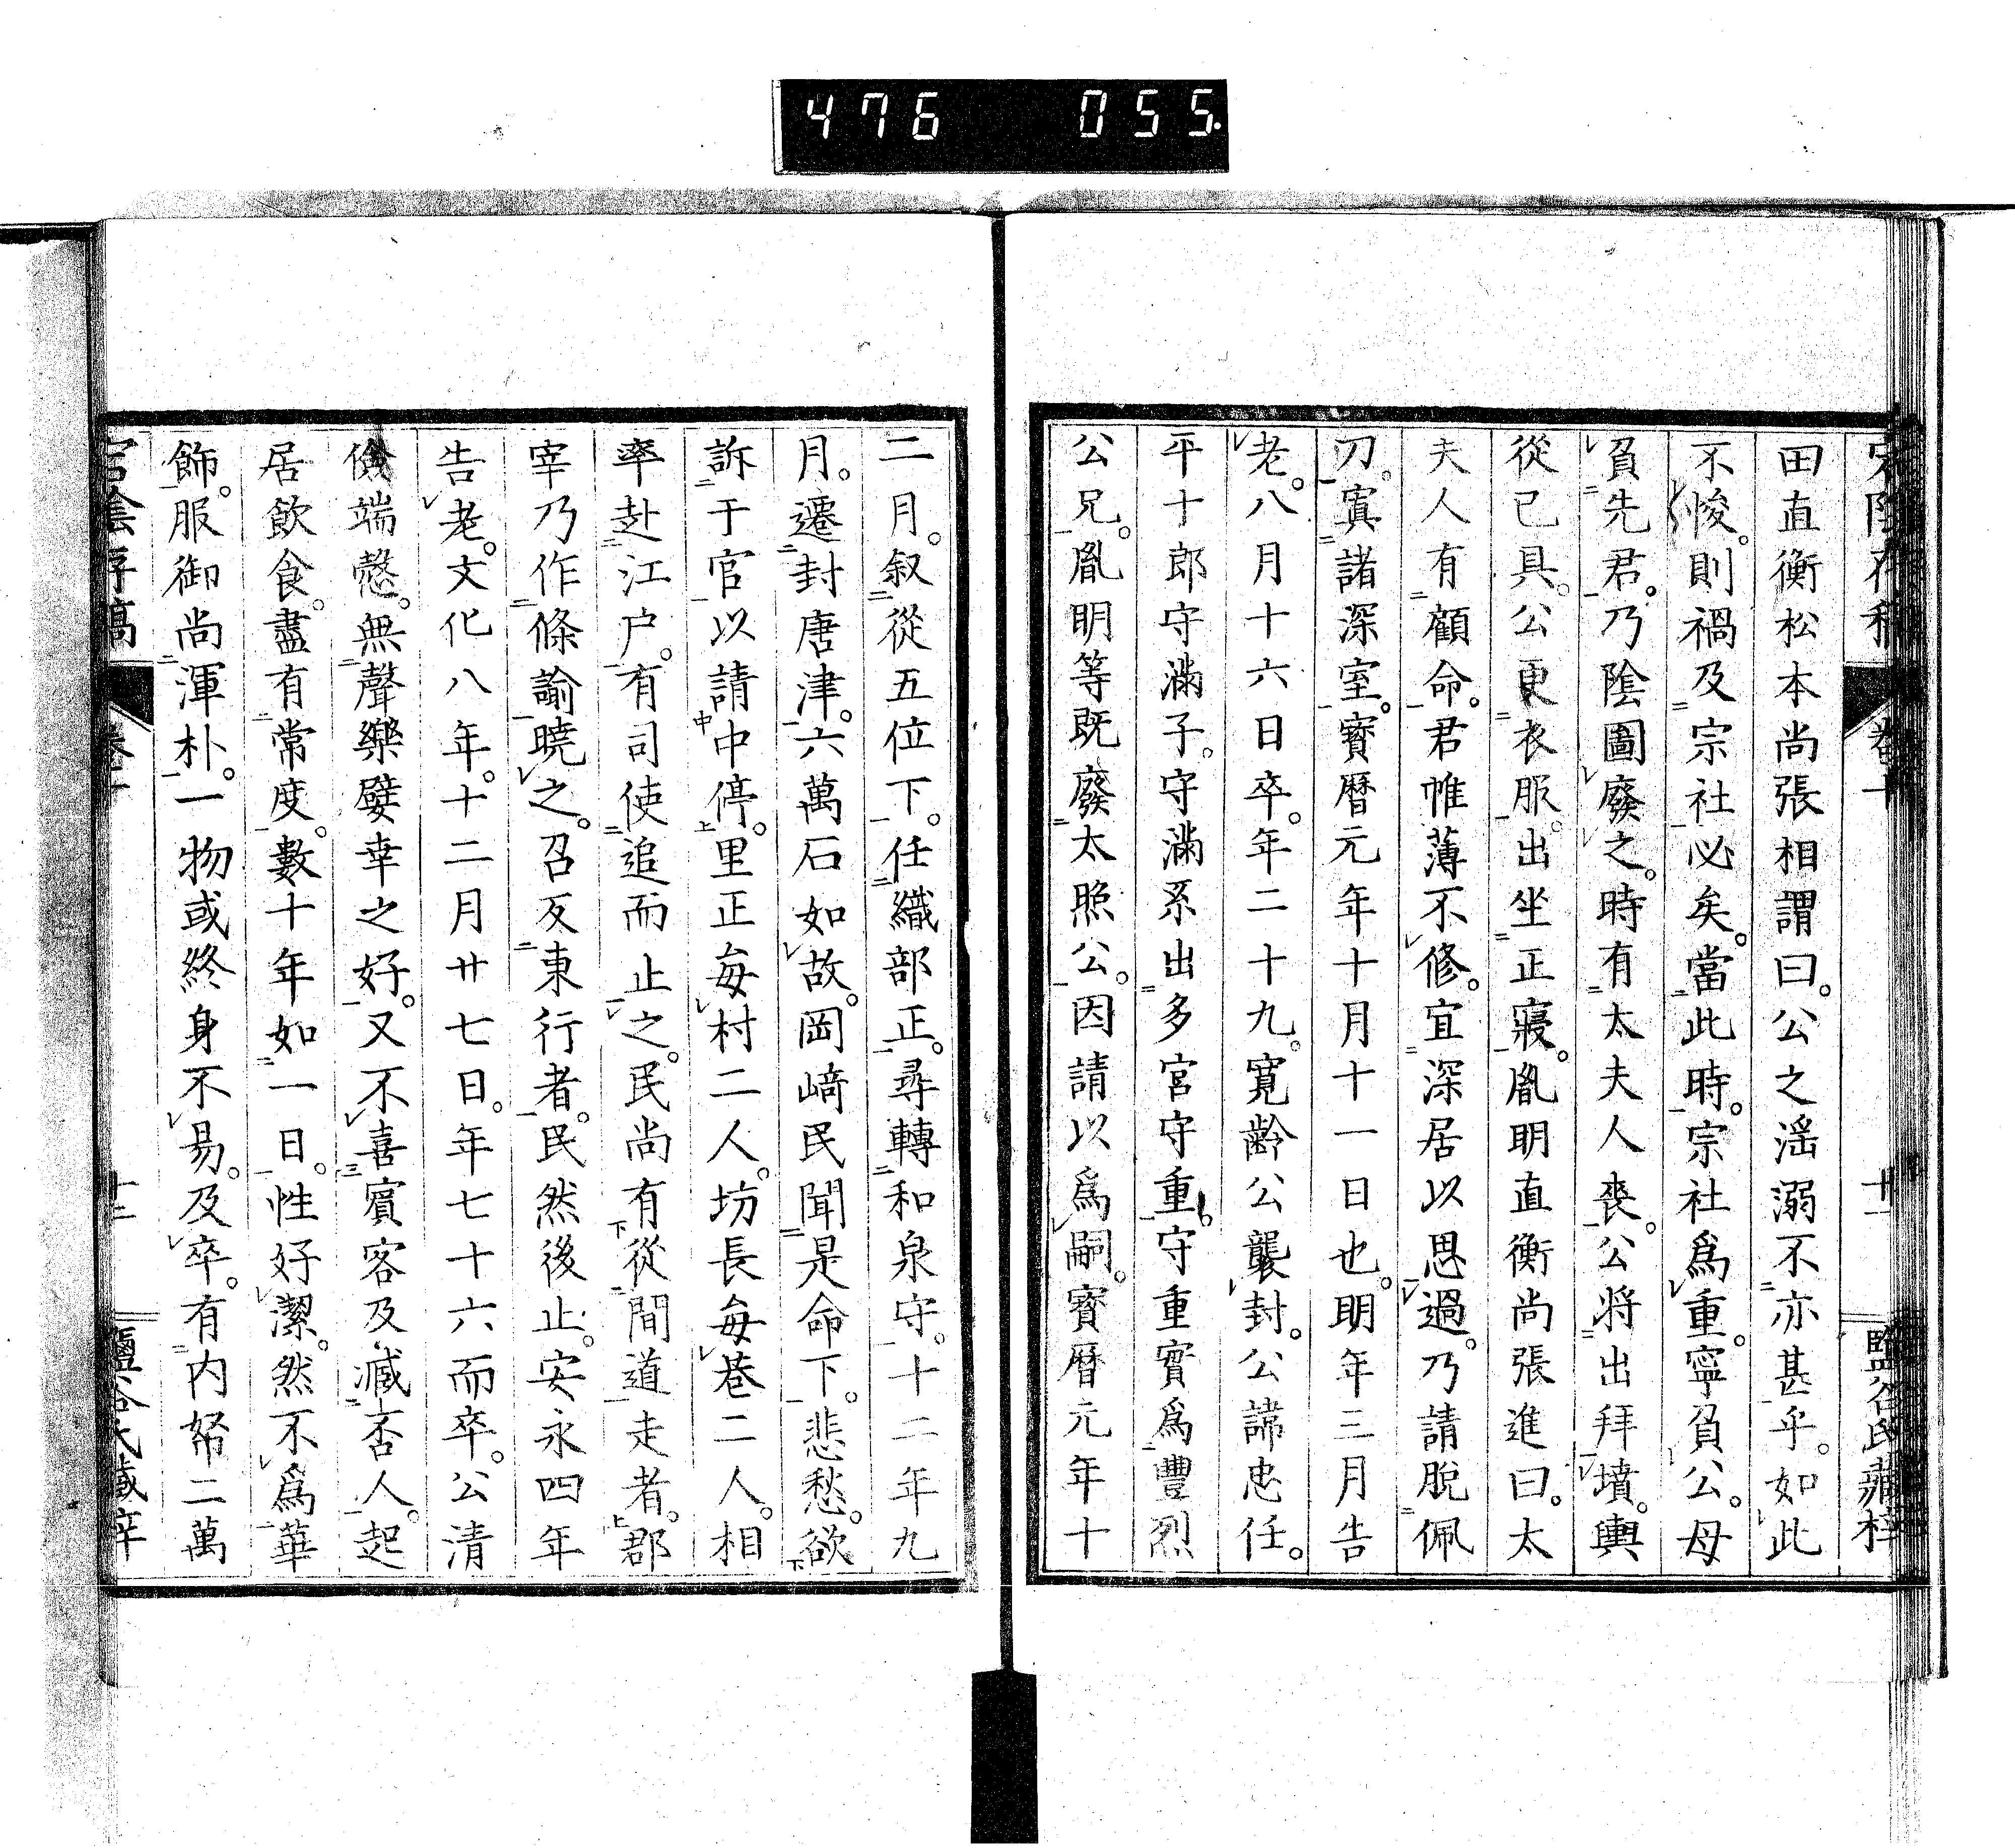 476 055.
田直衡松本尚張相謂曰。公之滛溺不亦甚乎。如此
不悛。則禍及宗社必矣。當此時。宗社爲重。寧負公。毋
負先君。乃陰圖廢之。時有太夫人喪。公將出拜墳。輿
從已具。公更衣服。出坐正寢。胤明直衡尚張進曰。太
夫人有顧命。君帷薄不修。宜深居以思過。乃請脫佩
刀。寘諸深室。寳暦元年十月十一日也。明年三月告
老。八月十六日卒。年二十九。寛齢公襲封。公諱忠任。
平十郎守満子。守満系出多宮守重。守重實爲豐烈
公兄。胤明等既廢太照公。因請以爲嗣。寳暦元年十
二月。叙從五位下。任織部正。尋轉和泉守。十二年九
月。遷封唐津。六萬石如故。岡﨑民聞是命下。悲愁。欲
訴于官以請中停。里正毎村二人。坊長毎巷二人。相
率赴江户。有司使追而止之。民尚有從間道走者。郡
宰乃作條諭曉之。召反東行者。民然後止。安永四年
告老。文化八年。十二月廿七日。年七十六而卒。公清
儉端愨。無聲樂嬖幸之好。又不喜賓客及臧否人。起
居飲食。盡有常度。數十年如一日。性好潔。然不爲華
飾。服御尚渾朴。一物或終身不易。及卒。有内帑二萬
宕陰存稿 卷十 十二 鹽谷氏藏梓